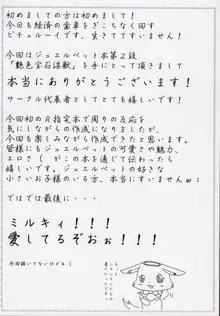 初めましての方は初めまして!
今日も経済の歯車をぎこちなく回す
ピチュルーイです、生きててすいません!
今回はジュエルペット本第2段
「艶色宝石淫獣」を手にとって頂きまして
本当にありがとうございます!
サークル代表者としてとても嬉しいです!
今回初のR指定本で周りの反応を
気にしながらの作成になりましたが、
今回も楽しみながら作成できたと思います。
皆様にもジュエルペットの可愛さや魅力、
エロさ(がこの本を通じて伝わったら
嬉しいです。ジュエルペットの好きな
小さいお子様のいる方、本当にすいませんw;
ではでは最後に・・・
ミルキィ!!!
愛してるぞおぉ!!!
今回描いてないけどね(